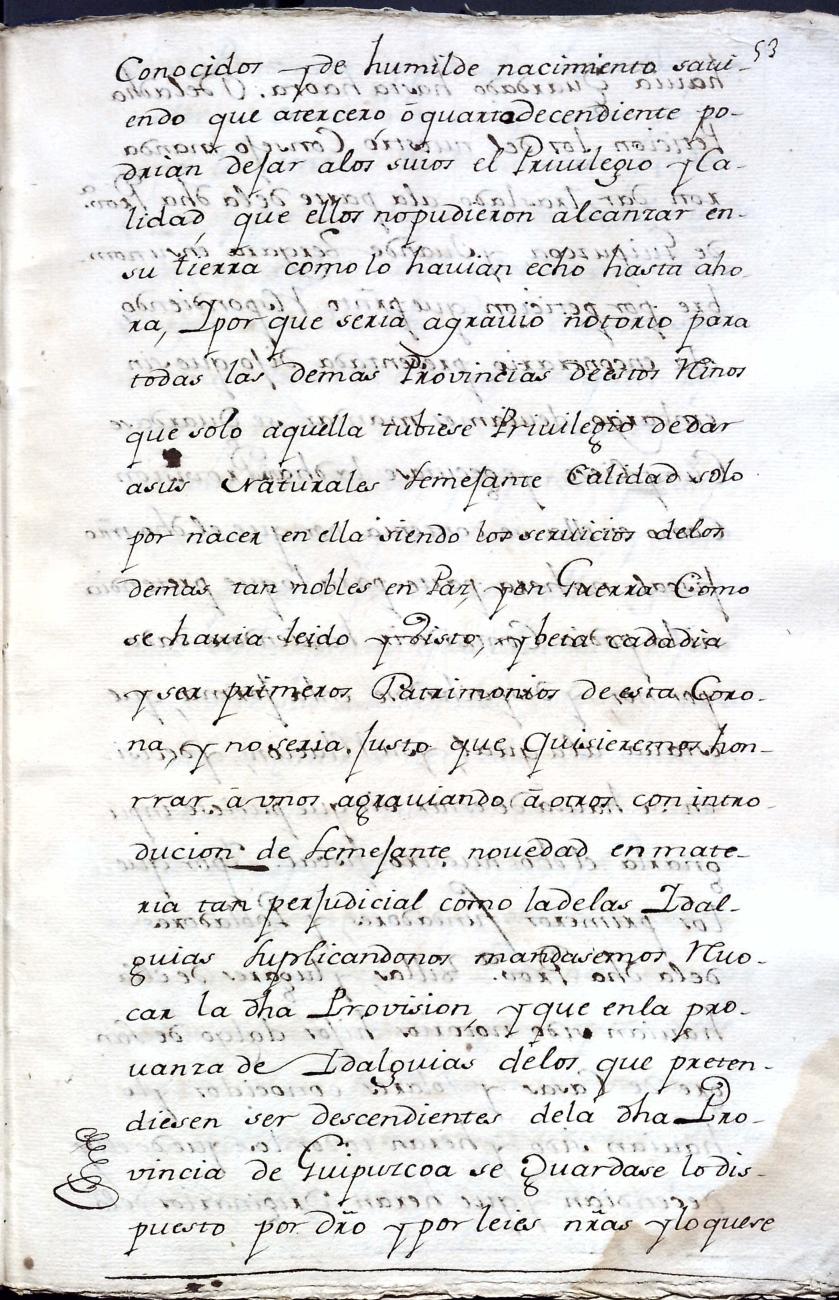 53
Conocidos y de humilde nacimiento savi-
endo que atercero ô quarto decendiente po-
drian dejar alos suios el Privilegio y Ca-
lidad que ellos no pudieron alcanzar en
su tierra como lo havian echo hasta aho-
ra, Y por que seria agravio notorio para
todas las demas Provincias de estos Rinos
que solo aquella tubiese Privilegio de dar
asus Naturales semejante Calidad solo
por nacer en ella siendo los servicios delos
demas tan nobles en Paz, y en Guerra Como
se havia leido y visto, y beia cada dia
y ser primeros Patrimonios de esta Coro-
na, y no seria justo que quisieremos hon-
rrar â vnos agraviando â otros con intro-
ducion de semejante novedad en mate-
ria tan perjudicial como la delas Idal-
guias suplicandonos mandasemos Revo-
car la dha Provision, y que enla pro-
vanza de Idalguias delos que preten-
diesen ser descendientes dela dha Pro-
vincia de Guipuzcoa se guardase lo dis-
puesto por dro y por leies nras y lo que se